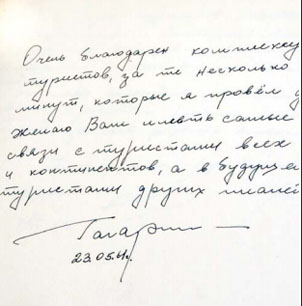 Очень благодарен комплексу
туристов, за те несколько
минут, которые я провёл у
желаю Вам иметь самые
связи с туристами всех
и континентов, а в будущем
туристами других плане
Гагарин
23.05.61г.